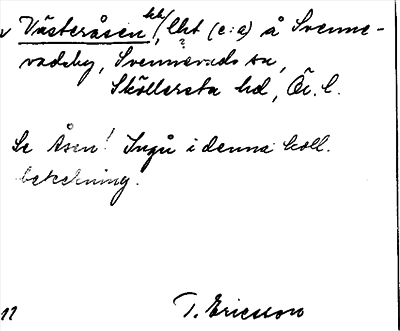 v Västeråsen bbl, lht (e:a) å Svenne-
vadsby, Svennevads sn,
?
Sköllersta hd, Ör. l.
Se Åsen! Ingå i denna koll.
beteckning.
11 T. Ericsson